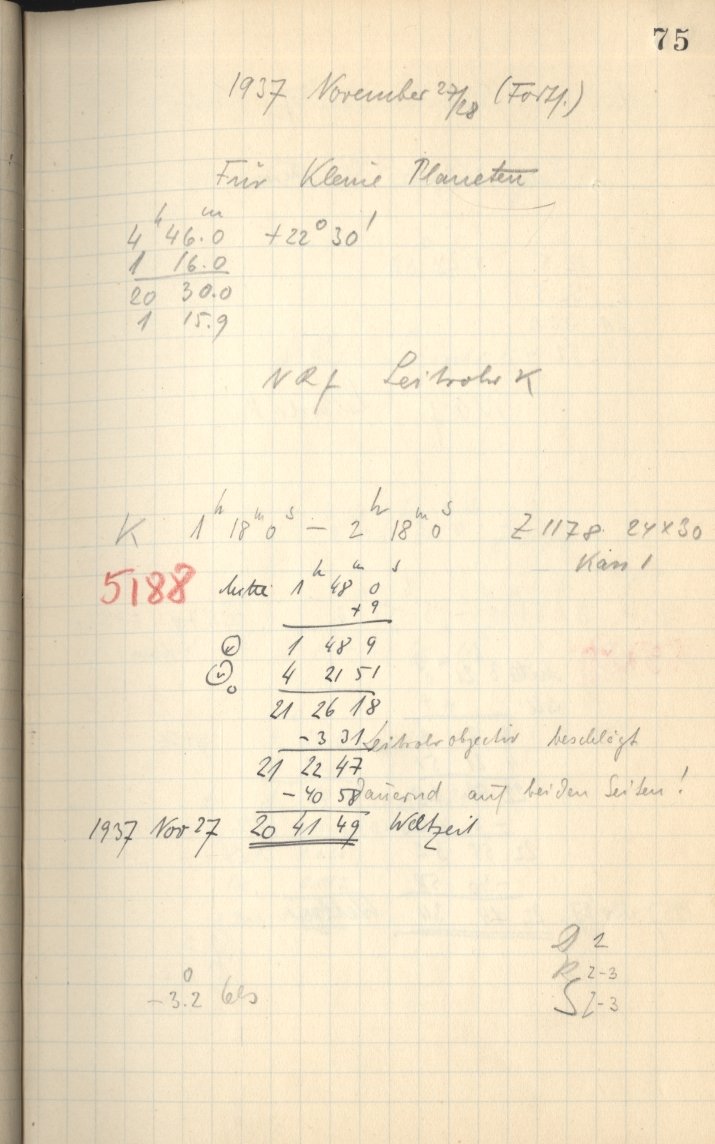 75
1937 November 27/28 (Forts.)
Für Kleine Planeten
4ʰ 46.ᵐ0 +22° 30'
1 16.0
20 30.0
1 15.9
Leitrohr K
K 1ʰ 18ᵐ 0ˢ — 2ʰ 18ᵐ 0ˢ Z 1178 24x30
Kass 1
5188 Mitte 1ʰ 48ᵐ 0ˢ
+9
1 48 9
4 21 51
21 26 18
-3 31 Leitrohrobjectiv beschlägt
21 22 47
-40 58 dauernd auf beiden Seiten!
1937 Nov 27 20 41 49 Weltzeit
2
R 2-3
-3.°2 Cels S 2-3